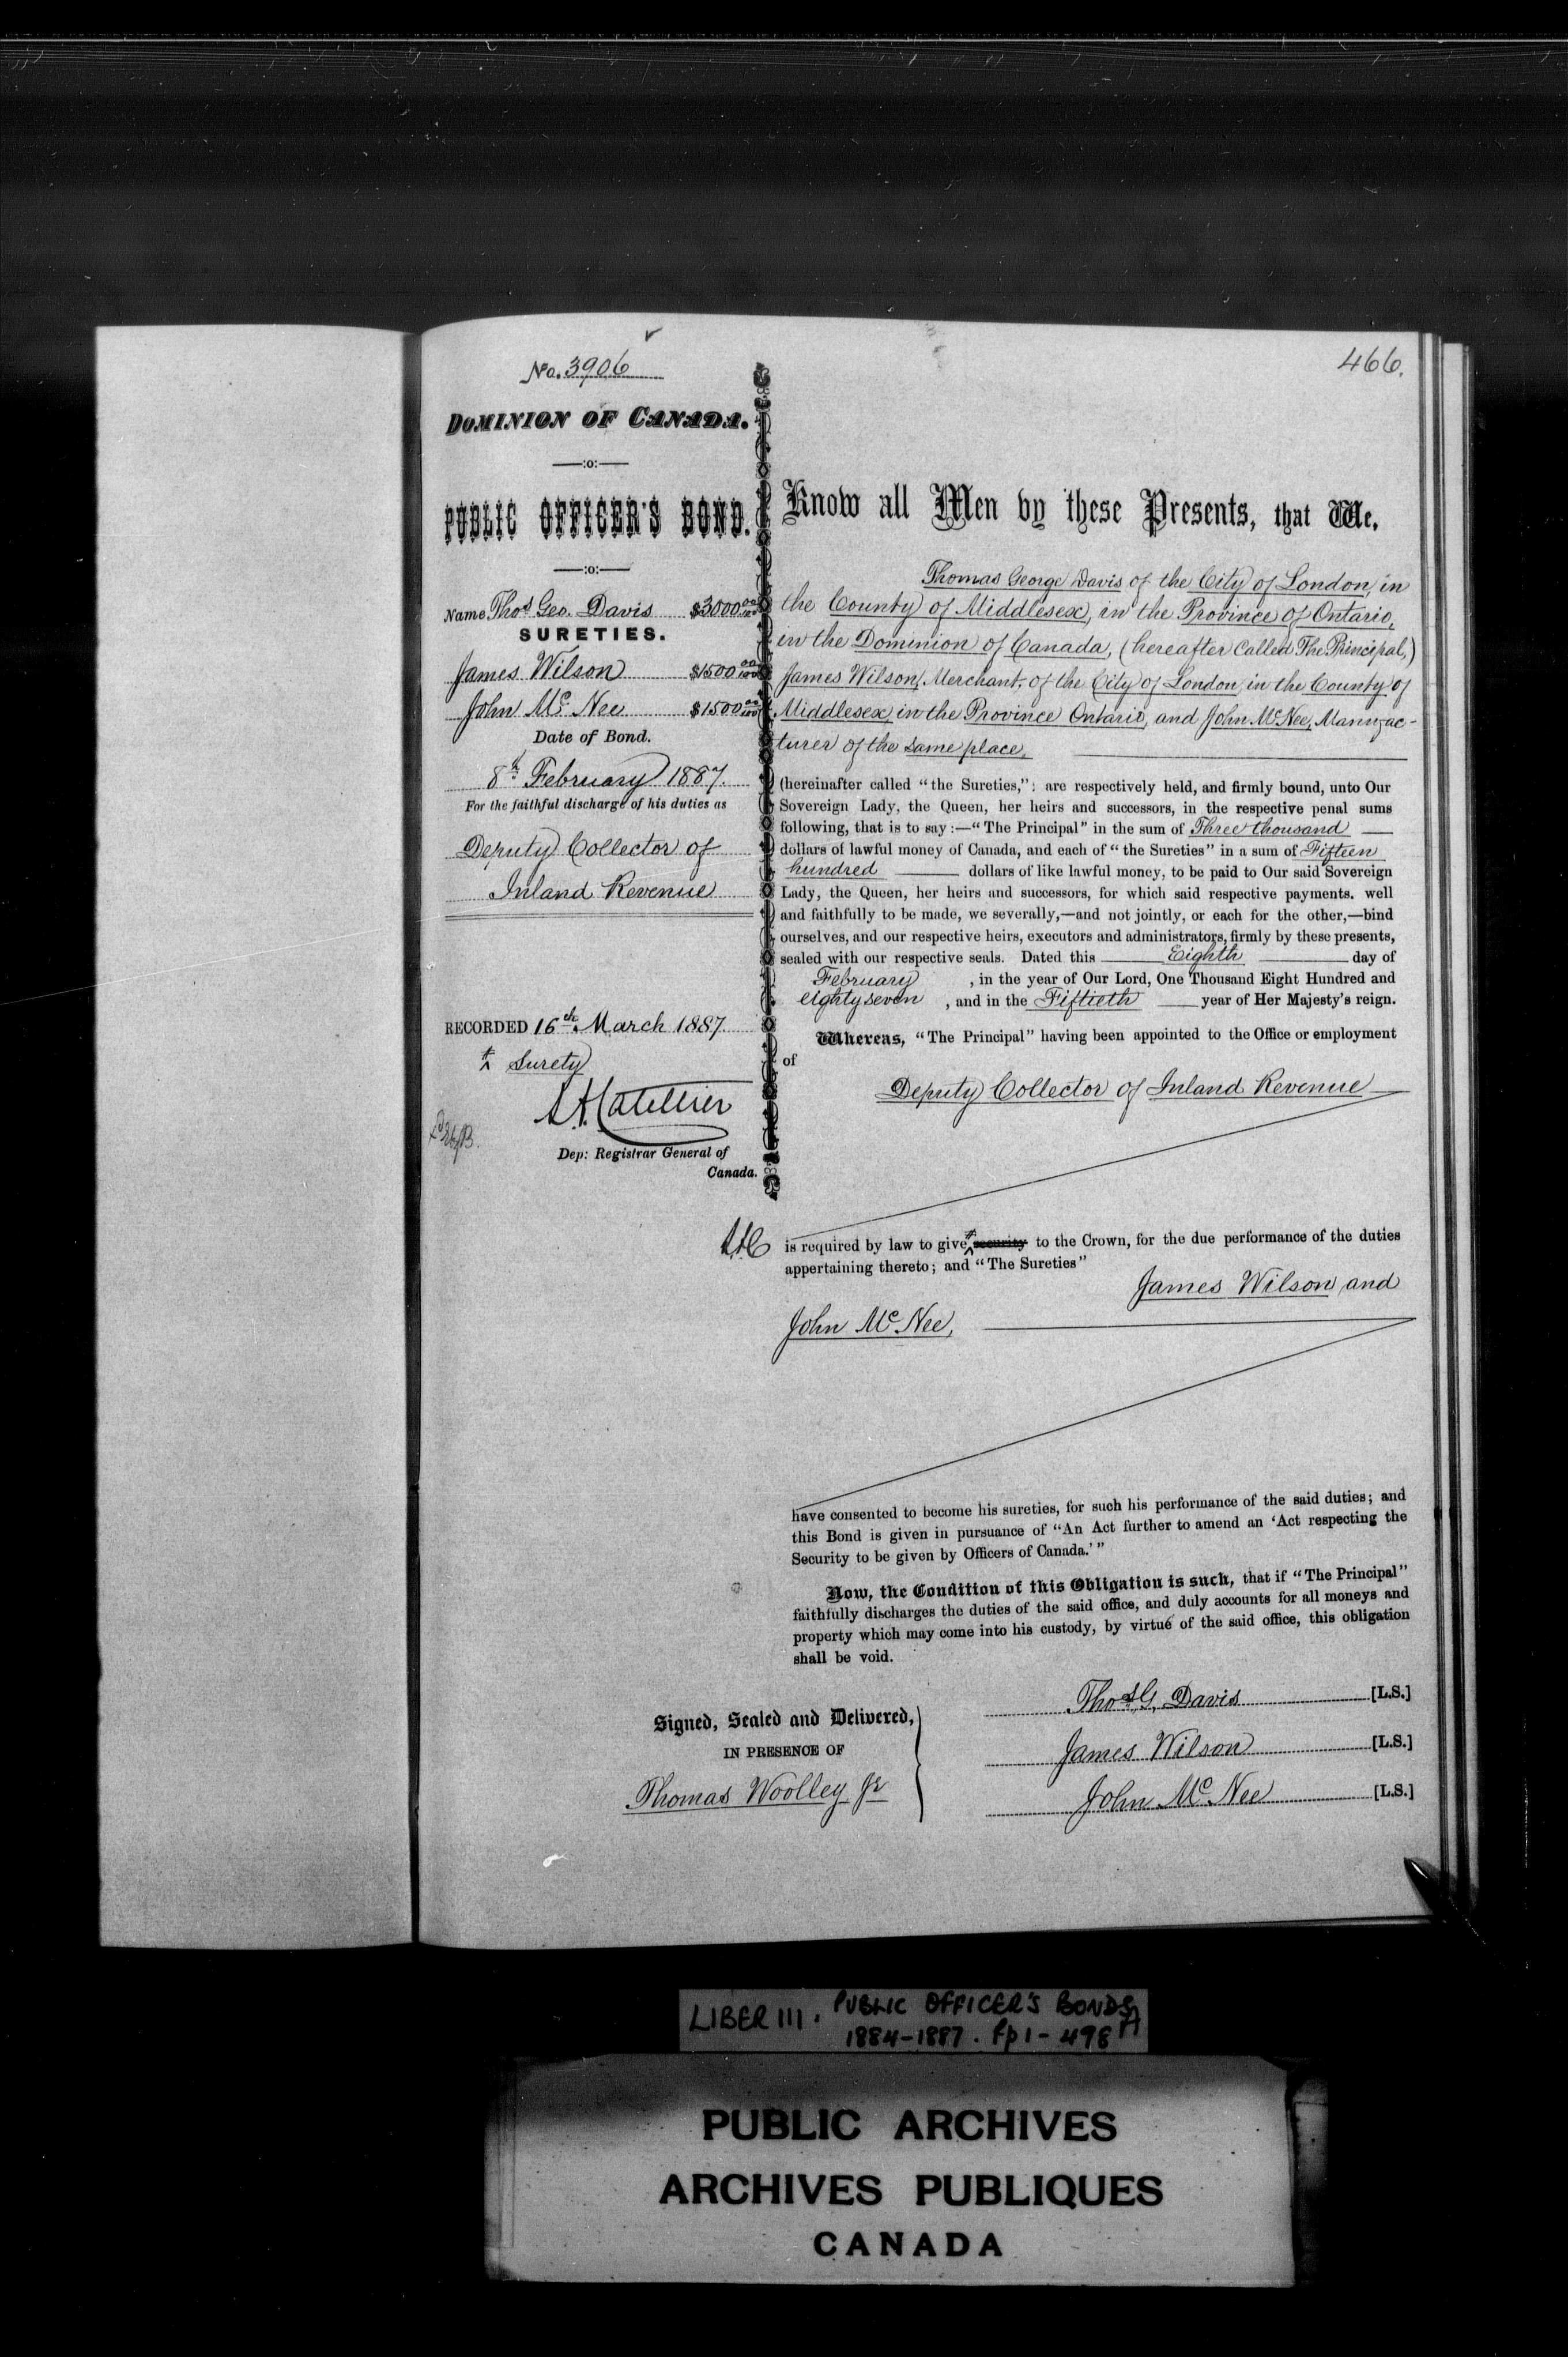 No. 3906
466.
DOMINION OF CANADA.
—:o:—
PUBLIC OFFICER'S BOND.
—:o:—
Name Thos Geo. Davis $3000 00/100
SURETIES.
James Wilson $1500 00/100
John Mc Nee $1500 00/100
Date of Bond.
8th February 1887.
For the faithful discharge of his duties as
Deputy Collector of
Inland Revenue
RECORDED 16th March 1887.
# Surety
Dep: Registrar General of
Canada.
Know all Men by these Presents, that We,
Thomas George Davis of the City of London, in
the County of Middlesex, in the Province of Ontario,
in the Dominion of Canada, (hereafter called The Principal,)
James Wilson, Merchant, of the City of London, in the County of
Middlesex, in the Province Ontario, and John McNee, Manufac-
turer of the same place,
(hereinafter called "the Sureties,": are respectively held, and firmly bound, unto Our
Sovereign Lady, the Queen, her heirs and successors, in the respective penal sums
following, that is to say:—"The Principal" in the sum of Three thousand
dollars of lawful money of Canada, and each of "the Sureties" in a sum of Fifteen
hundred dollars of like lawful money, to be paid to Our said Sovereign
Lady, the Queen, her heirs and successors, for which said respective payments. well
and faithfully to be made, we severally,—and not jointly, or each for the other,—bind
ourselves, and our respective heirs, executors and administrators, firmly by these presents,
sealed with our respective seals. Dated this Eighth day of
February, in the year of Our Lord, One Thousand Eight Hundred and
eighty seven, and in the Fiftieth year of Her Majesty's reign.
Whereas, "The Principal" having been appointed to the Office or employment
of
Deputy Collector of Inland Revenue
is required by law to give # security to the Crown, for the due performance of the duties
appertaining thereto; and "The Sureties"
James Wilson and
John Mc Nee,
have consented to become his sureties, for such his performance of the said duties; and
this Bond is given in pursuance of "An Act further to amend an 'Act respecting the
Security to be given by Officers of Canada.'"
Now, the Condition of this Obligation is such, that if "The Principal"
faithfully discharges the duties of the said office, and duly accounts for all moneys and
property which may come into his custody, by virtue of the said office, this obligation
shall be void.
Signed, Sealed and Delivered,
IN PRESENCE OF
Thomas Woolley Jr
Thos G. Davis [L.S.]
James Wilson [L.S.]
John Mc Nee [L.S.]
LIBER 111. PUBLIC OFFICER'S BONDS
1884-1887. fp 1-498A
PUBLIC ARCHIVES
ARCHIVES PUBLIQUES
CANADA